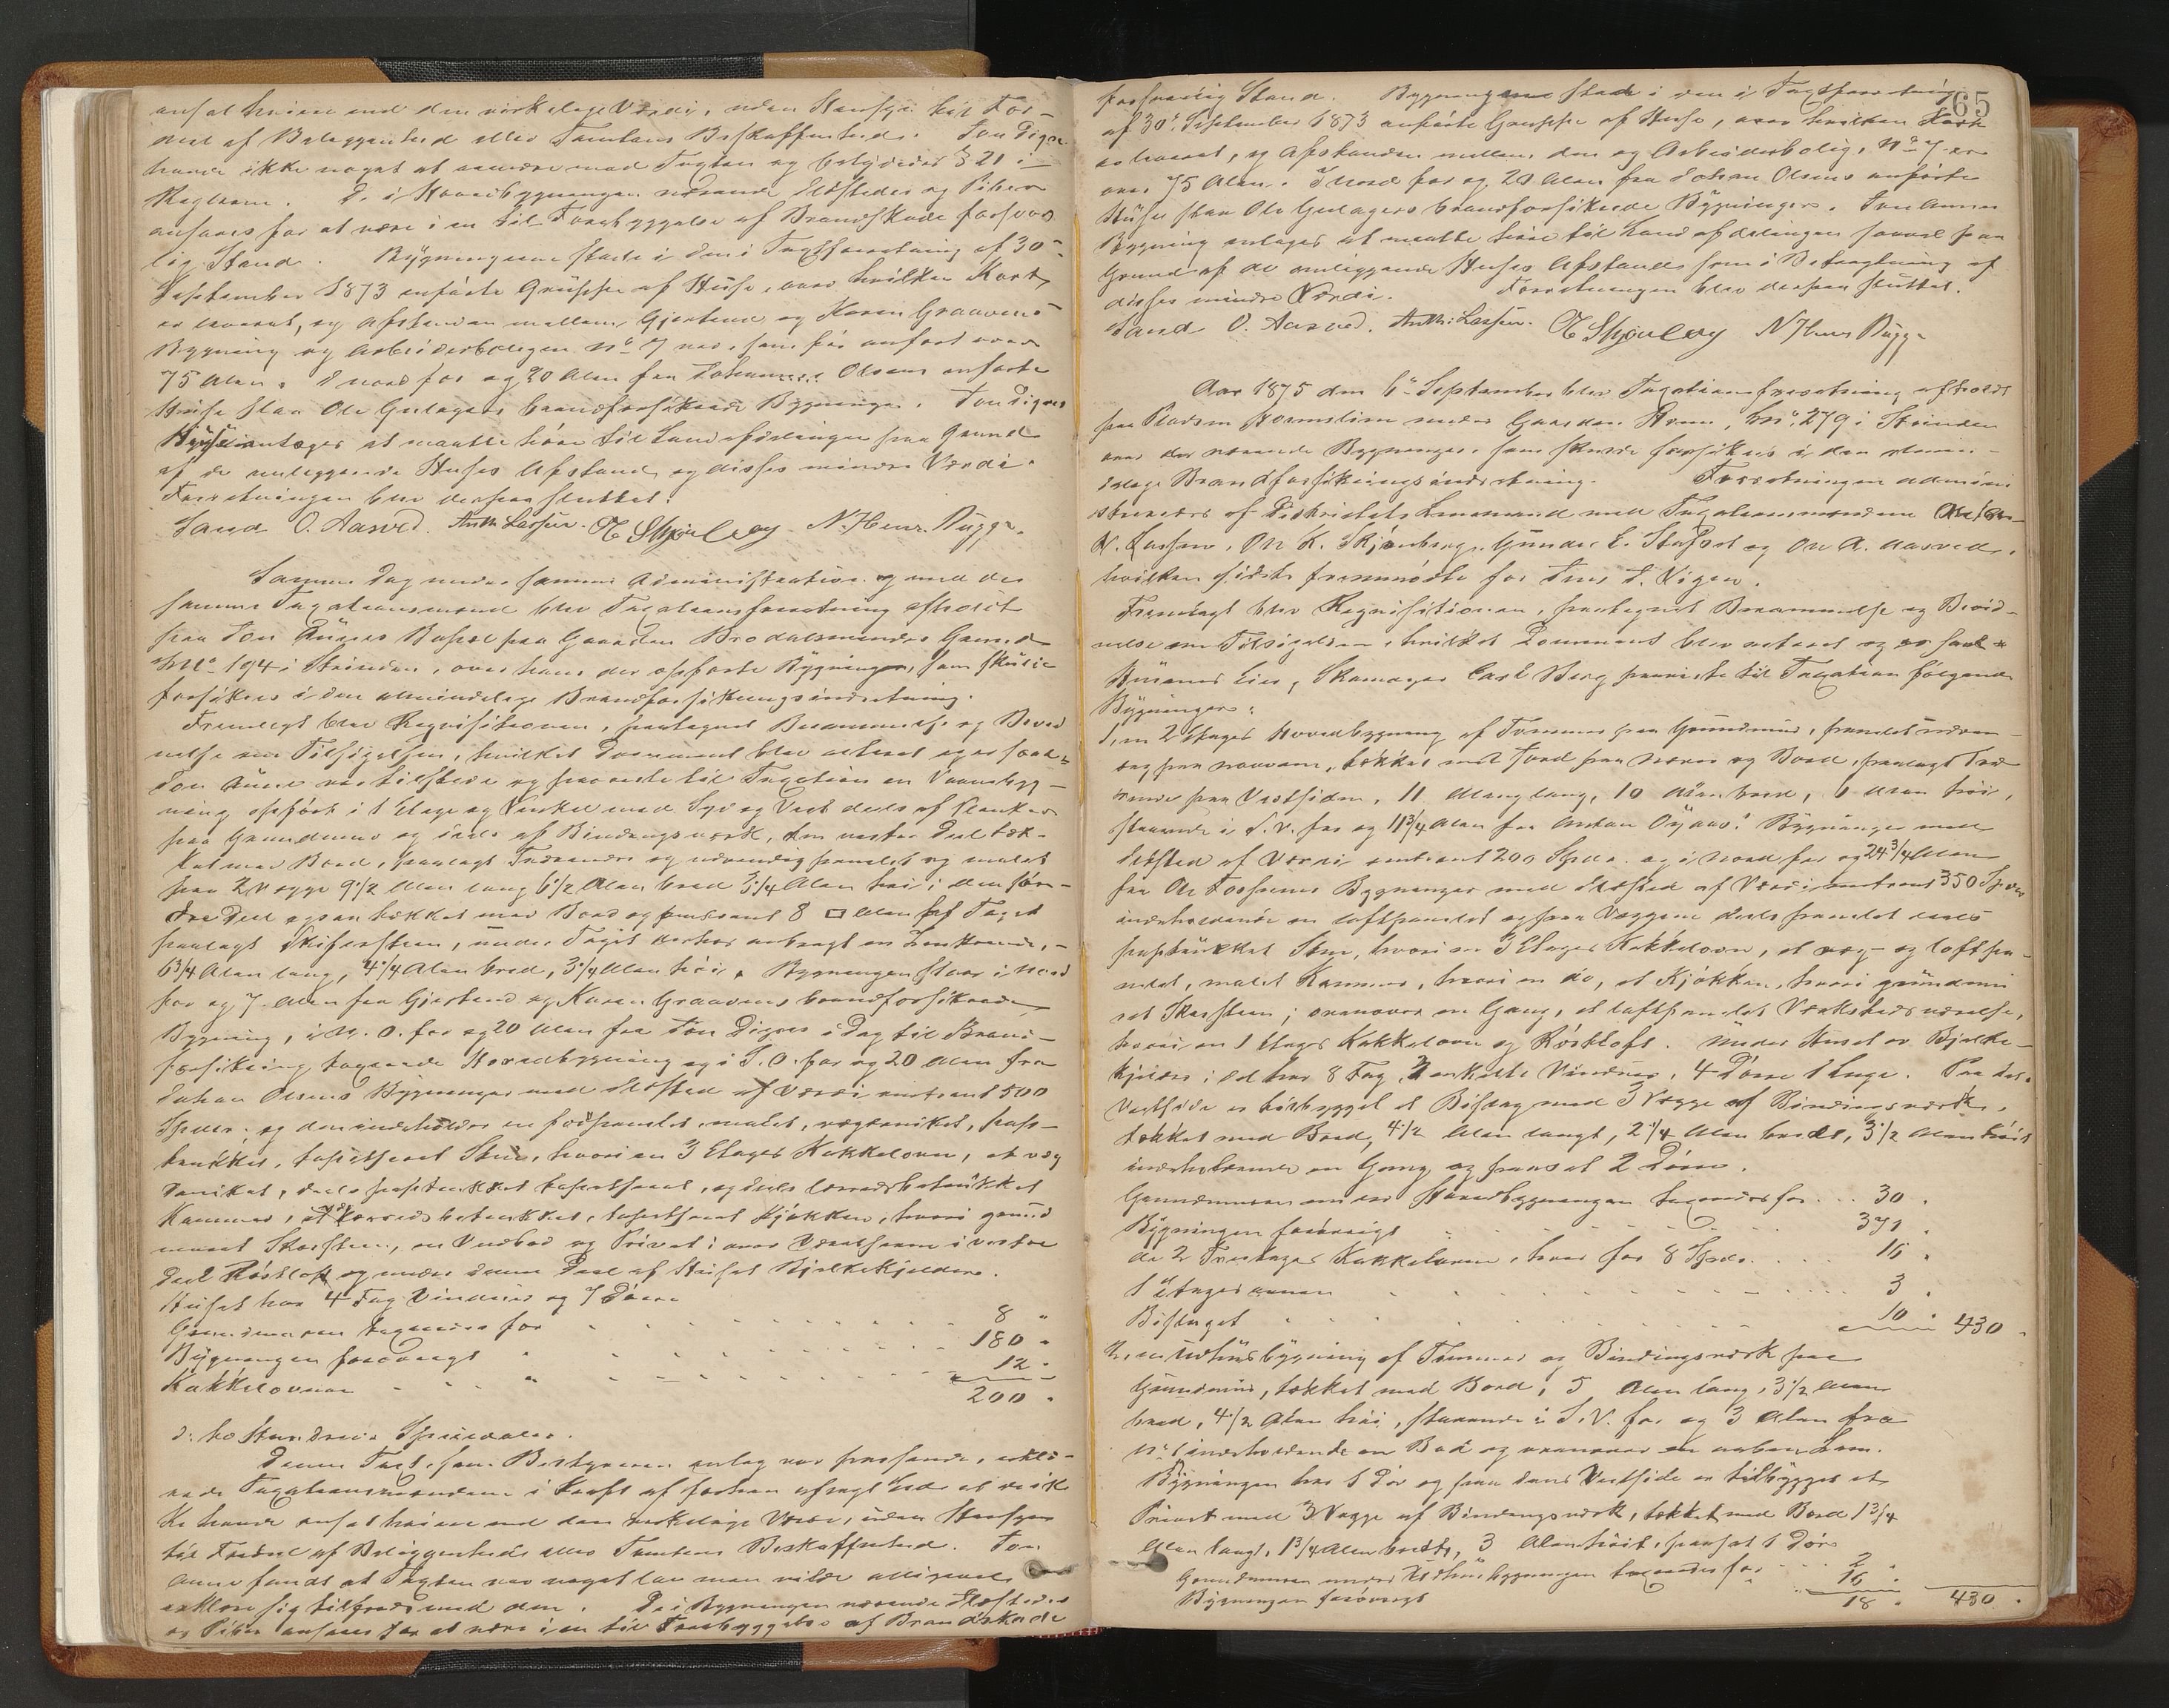 ansat høiere end den virkelige Værdi, uden Hensyn til For-
deel af Beliggenhed eller Tomtens Beskaffenhed. Jon Digre
havde ikke noget at erindre mod Taxten og betydedes § 21 i
Reglerne. De i Hovedbygningen værende Ildsteder og Piber
ansaaes for at være i en til Forebyggelse af Brandskade forsvar
lig Stand. Bygningerne staae i den i Taxtforretning af 30te
September 1873 anførte Gruppe af Huse, over hvilken Kart
er leveret, og Afstanden mellem Gjertrud og Karen Graavens
Bygning og Arbeiderboligen No 7 var, som før anført over
75 Alen. I Nord for og 20 Alen fra Johannes Olsens anførte
Huse staa Ole Gulagers brandforsikrede Bygninger. Jon Digres
Huse antages at maatte høre til Landafdelingen paa Grund
af de omliggende Huses Afstand og disses mindre Værdi.
Forretningen blev derpaa sluttet.
Saud O. Aasved. Anth: Lassen. O E Skjønberg N. Henr. Bügge.
Samme Dag under samme Administration og med de
samme Taxationsmænd blev Taxationsforretning afholdt
paa Jon Aunes Bopæl paa Gaarden Brodalsmindes Grund
M No 194 i Strinden, over hans der opførte Bygninger, som skulde
forsikres i den almindelige Brandforsikringsindretning.
Fremlagt blev Requisitionen, paategnet Berammelse og Bevid
nelse om Tilsigelsen, hvilket Document blev acteret og er saa-
Jon Aune var tilstede og paaviste til Taxation en Vaanebyg-
ning opført i 1 Etage og Vinkel mod Syd og Vest deels af Planker
paa Grundmur og deels af Bindingsværk, den vestre Deel tæk-
ket med Bord, paalagt Trærender og udvendig panelet og malet
paa 2 Vægge 9 1/2 Alen lang 6 1/2 Alen bred 3 1/4 Alen høi; den søn-
dre Deel ogsaa tækket med Bord og omtrent 8 □ Alen af Taget
paalagt Skifersteen, under Taget derhos anbragt en Trærende,
6 3/4 Alen lang, 4 1/4 Alen bred, 3 1/4 Alen høi. Bygningen staar i Nord
for og 7 Alen fra Gjertrud og Karen Graavens brandforsikrede
Bygning, i N. O. for og 20 Alen fra Jon Digres i Dag til Brand-
forsikring taxerede Hovedbygning og i S. O. for og 20 Alen fra
Johan Olsens Bygninger med Ildsted af Værdi omtrent 500
Spdlr; og den indeholder en fodpanelet, malet, vægfernist, pap-
trukket, tapetseret Stue, hvori en 3 Etages Kakkelovn, et væg
fernist, deels paptrukket tapetseret, og deels lærredsbetrukket
Kammer, et lærredsbetrukket, tapetseret Kjøkken, hvori grund
muret Skorsteen, en Vedbod og Privet; over Værelserne i vestre
Deel Røstloft og under denne Deel af Huset Bjelkekjelder.
Huset har 4 Fag Vinduer og 7 Døre
Grundmuren taxeredes for 8 "
Bygningen forøvrigt " 180 "
Kakkelovnen " 12 "
200 "
d: to Hundrede Speciedaler.
Denne Taxt, som Bestyreren antog var passende, erklæ-
rede Taxationsmændene i Kraft af forhen aflagt Eed at de ik
ke havde ansat høiere end den virkelige Værdi, uden Hensyn
til Fordeel af Beliggenhed eller Tomtens Beskaffenhed. Jon
Aune fandt at Taxten var noget lav men vilde alligevel
erklære sig tilfreds med den. De i Bygningen værende Ildsteder
og Piber ansaaes for at være i en til Forebyggelse af Brandskade
65
forsvarlig Stand. Bygningerne staae i den i Taxtforretning
af 30te September 1873 anførte Gruppe af Huse, over hvilken Kart
er leveret, og Afstanden mellem den og Arbeiderbolig No 7 er
over 75 Alen. I Nord for og 20 Alen fra Johan Olsens anførte
Huse staa Ole Gulagers brandforsikrede Bygninger. Jon Aunes
Bygning antages at maatte høre til Landafdelingen saavel paa
Grund af de omliggende Huses Afstand som i Betragtning af
disses mindre Værdi. Forretningen blev derpaa sluttet.
Saud O. Aasved. Anth: Lassen. O E Skjønberg N Henr Bügge
Aar 1875 den 6te September blev Taxationsforretning afholdt
paa Pladsen Hermelien under Gaarden Stene, M No 279 i Strinden
over der værende Bygninger, som skulde forsikres i den almin-
delige Brandforsikringsindretning. Forretningen admini
streredes af Districtets Lensmand med Taxationsmændene
N. Lassen, Ole K. Skjønberg, Gunder E. Stafset og Ole A. Aasved,
hvilken sidste fremmødte for Jens J. Vigen.
Fremlagt blev Requisitionen, paategnet Berammelse og Bevid-
nelse om Tilsigelsen, hvilket Document blev acteret og er saal
Husenes Eier, Skomager Carl Berg paaviste til Taxation følgende
Bygninger:
1, en 2 Etages Hovedbygning af Tømmer paa Grundmur, panelet udven-
dig paa, tækket med Jord paa Næver og Bord, paalagt Træ
rende paa Vestsiden, 11 Alen lang, 10 Alen bred, 6 Alen høi,
staaende i S. V. for og 11 3/4 Alen fra Anton Øyaas's Bygninger med
Ildsted af Værdi omtrent 200 Spdlr. og i Nord for og 24 3/4 Alen
fra Ole Forsenes Bygninger med Ildsted af Værdi omtrent 350 Spdlr
indeholdende en loftpanelet og paa Væggene deels panelet deels
paptrukket Stue, hvori en 3 Etages Kakkelovn, et væg- og loftpa-
nelet, malet Kammer, hvori en do, et Kjøkken, hvori grundmu
ret Skorsteen; ovenover en Gang, et loftpanelet Værkstedsværelse,
hvori en 1 Etages Kakkelovn og Røstloft. Under Huset er Bjelke-
kjelder; det har 8 Fag, 2 enkelte Vinduer, 4 Døre 1 Luge. Paa dets
Vestside er tilbygget et Bislag med 3 Vægge af Bindingsværk,
tækket med Bord, 4 1/2 Alen langt, 2 1/4 Alen bredt, 3 1/2 Alen høit
indeholdende en Gang og paasat 2 Døre.
Grundmuren under Hovedbygningen taxeredes for 30 "
Bygningen forøvrigt 371 "
de 2 Treetages Kakkelovne, hver for 8 Spdlr. 16 "
1 Etagesovnen 3 "
Bislaget 10 " 430 "
2, en Udhusbygning af Tømmer og Bindingsværk paa
Grundmur, tækket med Bord, 5 Alen lang, 3 1/2 Alen
bred, 4 1/2 Alen høi, staaende i S. V. for og 3 Alen fra
No 1 indeholdende en Bod og ovenover en aaben Lem.
Bygningen har 1 Dør og paa dens Vestside er tilbygget et
Privet med 3 Vægge af Bindingsværk, tækket med Bord 1 3/4
Alen langt, 1 3/4 Alen bredt, 3 Alen høit, paasat 1 Dør
Grundmuren under Udhusbygningen taxeredes for 2 "
Bygningen forøvrigt 16 "
18 " 430 "